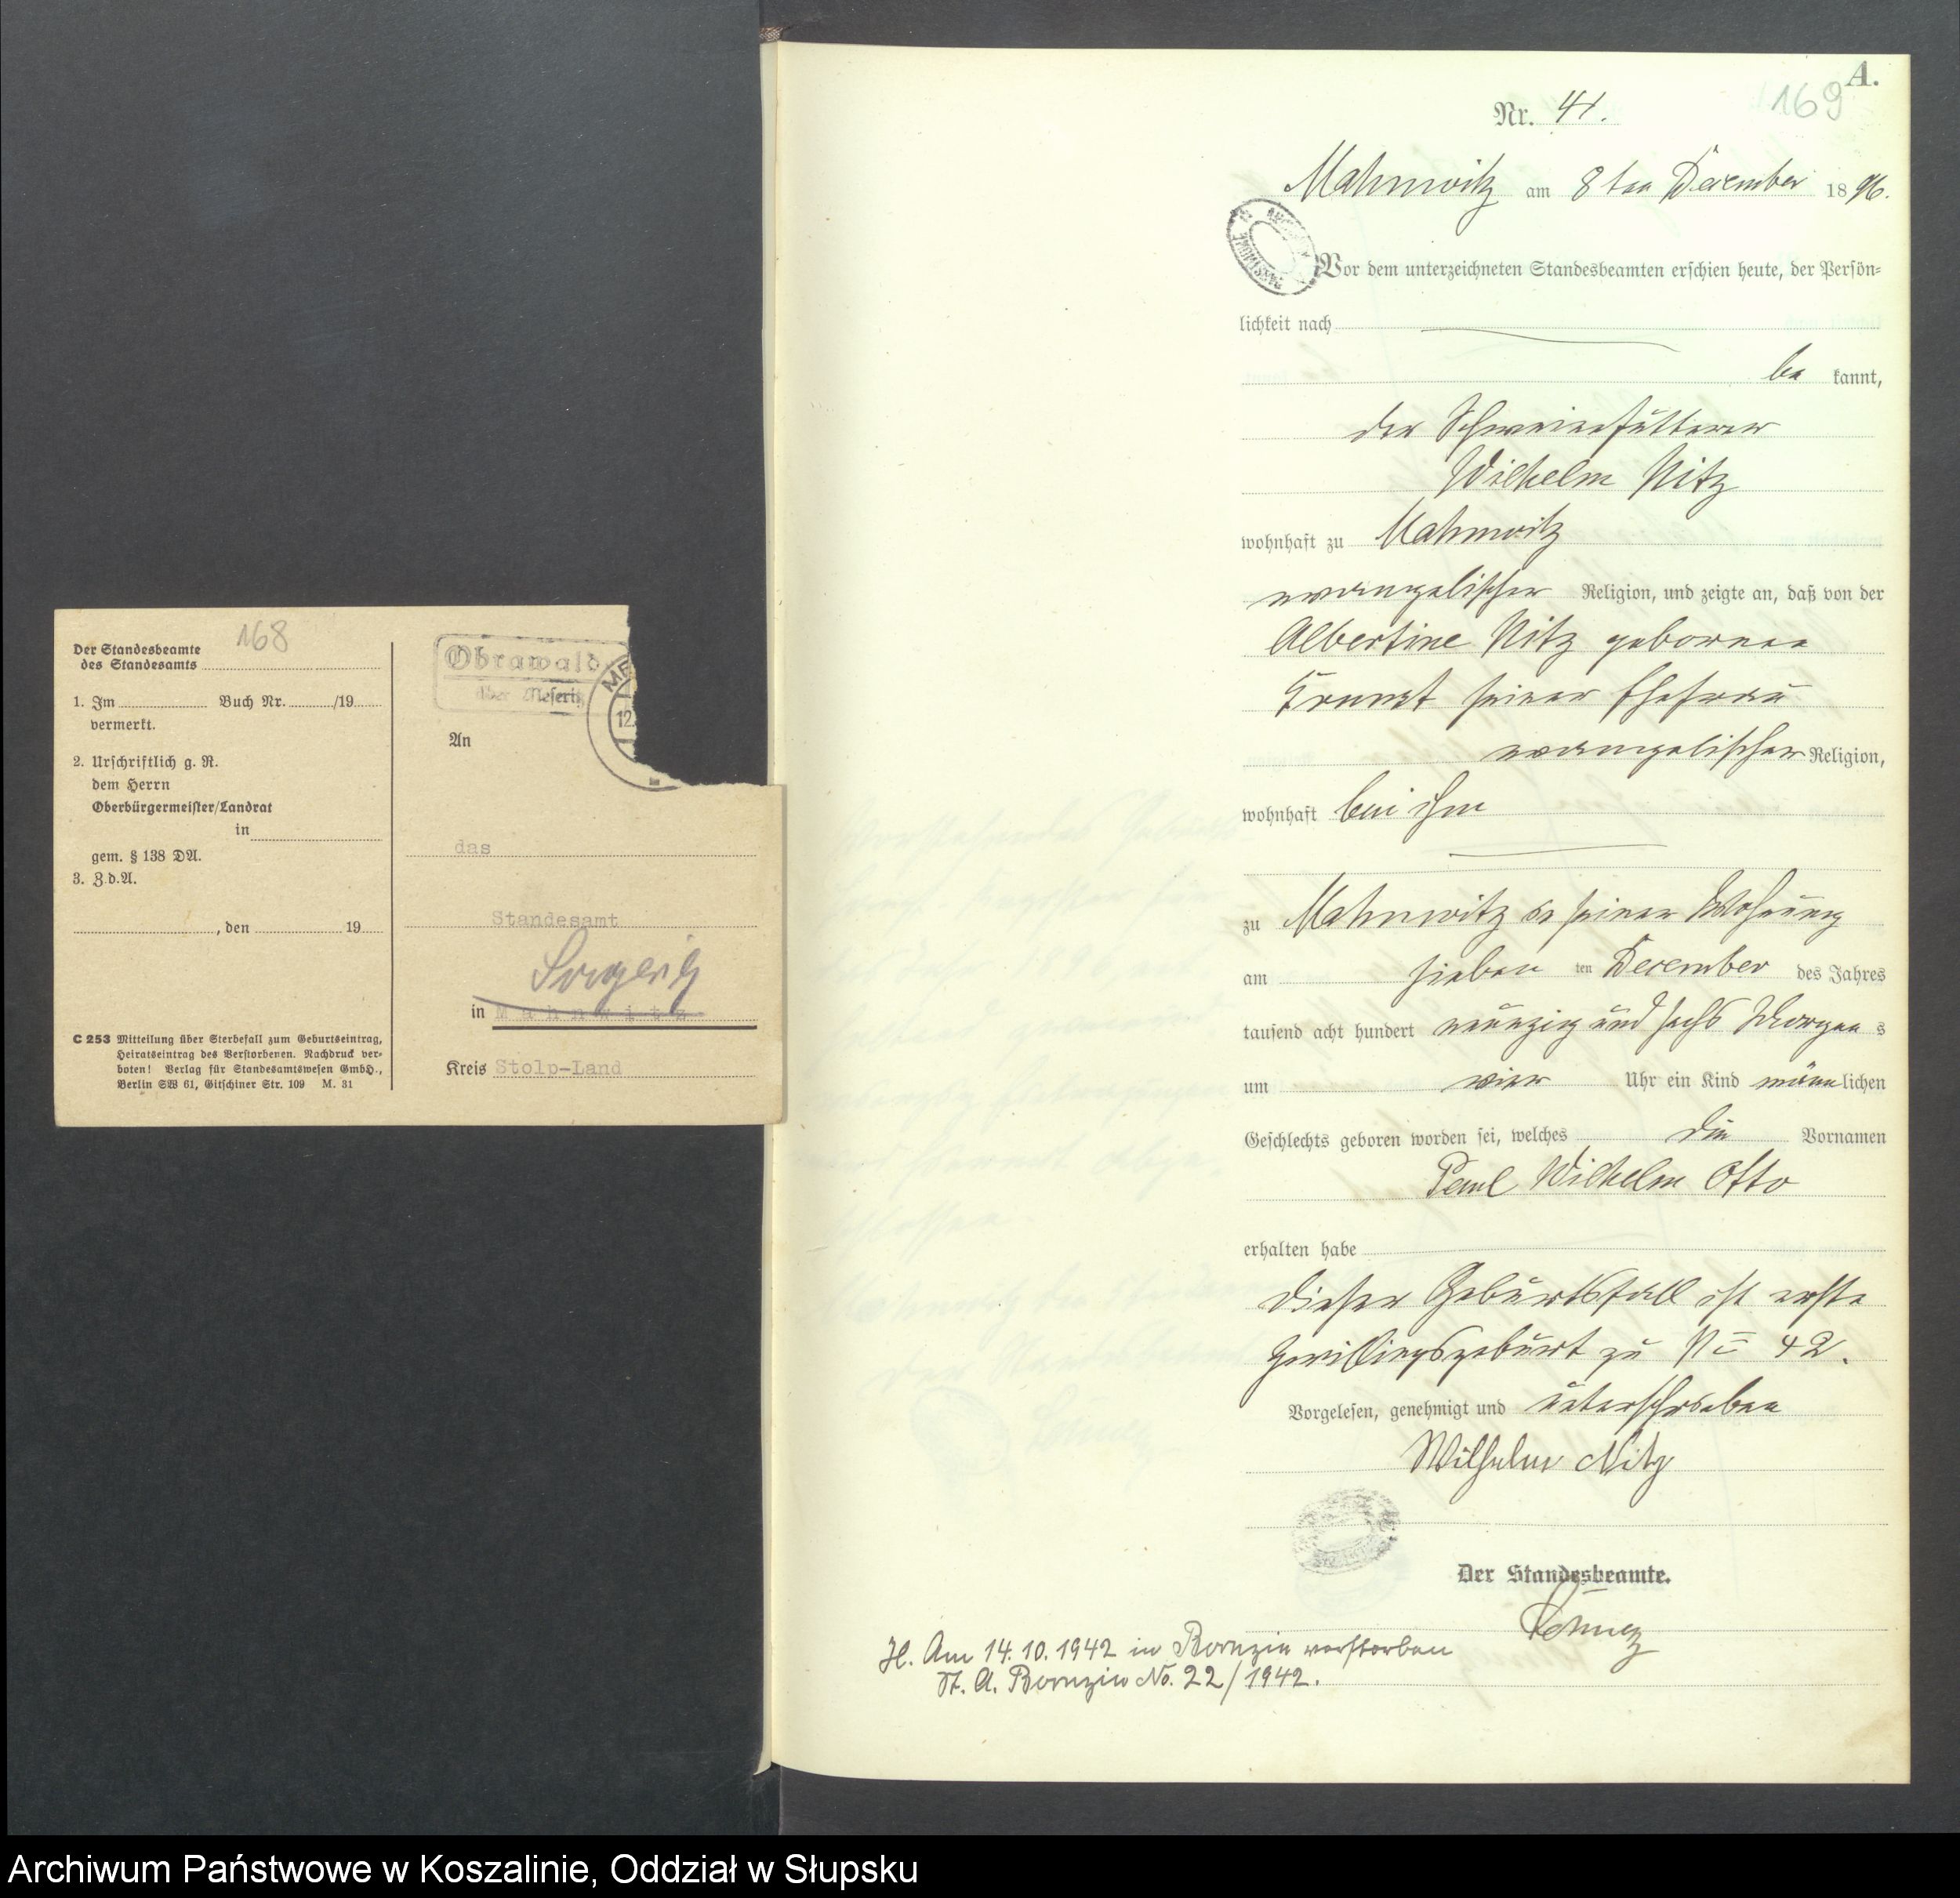 168
Der Standesbeamte
des Standesamts
1. Im Buch Nr. /19
vermerkt.
2. Urschriftlich g. R.
dem Herrn
Oberbürgermeister/Landrat
in
gem. § 138 DA.
3. Z.d.A.
, den 19
C 253 Mitteilung über Sterbefall zum Geburtseintrag,
Heiratseintrag des Verstorbenen. Nachdruck ver-
boten! Verlag für Standesamtswesen GmbH.,
Berlin SW 61, Gitschiner Str. 109 M. 31
Obrawald
über Meseritz
ME
12
An
das
Standesamt
Sorgeritz
in Mahnwitz
Kreis Stolp-Land
A.
169
Nr. 41.
Mahnwitz am 8ten December 1896.
Vor dem unterzeichneten Standesbeamten erschien heute, der Persön-
lichkeit nach
be kannt,
der Schweinefütterer
Wilhelm Nitz
wohnhaft zu Mahnwitz
evangelischer Religion, und zeigte an, daß von der
Albertine Nitz geborene
seiner Ehefrau
evangelischer Religion,
wohnhaft bei ihm
zu Mahnwitz in seiner Wohnung
am sieben ten December des Jahres
tausend acht hundert neunzig und sechs Morgen s
um vier Uhr ein Kind männ lichen
Geschlechts geboren worden sei, welches die Vornamen
Paul Wilhelm Otto
erhalten habe
Dieser Geburtsfall ist erste
Zwillingsgeburt zu No 42.
Vorgelesen, genehmigt und unterschrieben
Wilhelm Nitz
Der Standesbeamte.
H. Am 14.10.1942 in Bornzin verstorben
St. A. Bornzin No. 22/1942.
Archiwum Państwowe w Koszalinie, Oddział w Słupsku